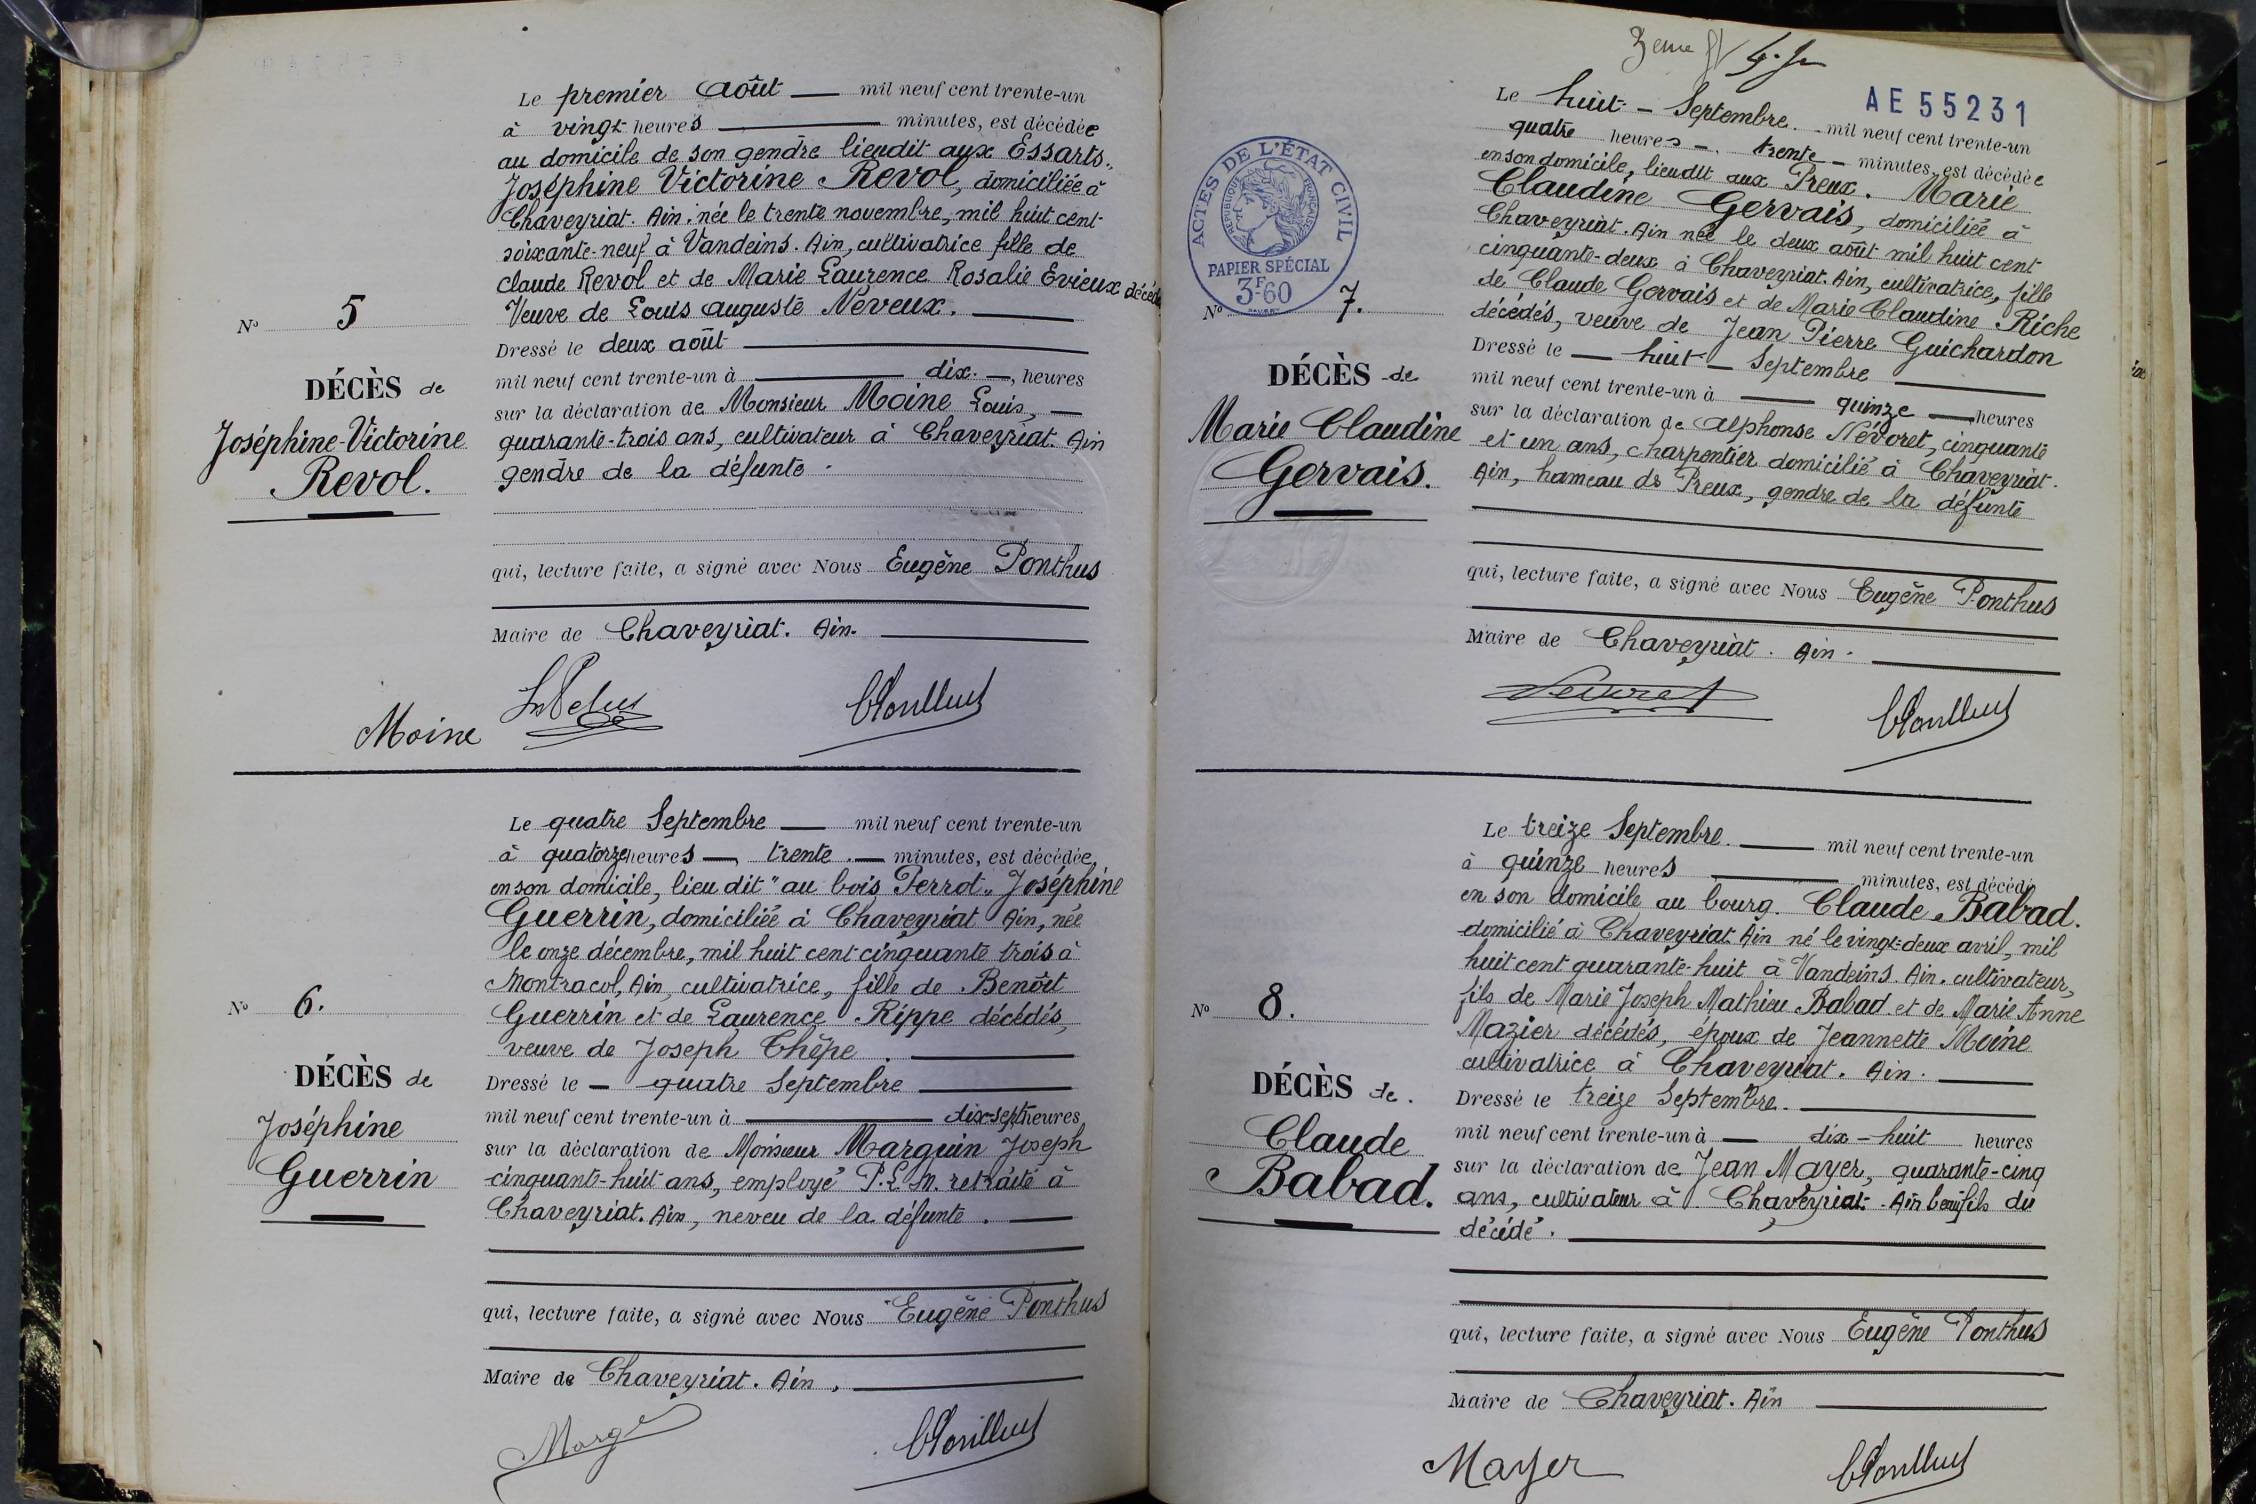 Le premier Août — mil neuf cent trente-un
à vingt heures — minutes, est décédée
au domicile de son gendre lieudit aux Essarts.
Joséphine Victorine Revol, domiciliée à
Chaveyriat. Ain. née le trente novembre, mil huit cent
soixante-neuf à Vandeins. Ain, cultivatrice fille de
Claude Revol et de Marie Laurence Rosalie Evieux décédés
Veuve de Louis Auguste Néveux. —
Dressé le deux août —
mil neuf cent trente-un à — dix. —, heures
sur la déclaration de Monsieur Moine Louis, —
quarante-trois ans, cultivateur à Chaveyriat. Ain
gendre de la défunte.
qui, lecture faite, a signé avec Nous Eugène Ponthus
Maire de Chaveyriat. Ain. —
Moine
N° 5
DÉCÈS de
Joséphine-Victorine
Revol.
Le quatre Septembre — mil neuf cent trente-un
à quatorze heures — trente. — minutes, est décédée,
en son domicile, lieu dit "au bois Perrot" Joséphine
Guerrin, domiciliée à Chaveyriat Ain, née
le onze décembre, mil huit cent cinquante trois à
Montracol, Ain, cultivatrice, fille de Benoît
Guerrin et de Laurence Rippe décédés,
veuve de Joseph Chêpe. —
Dressé le — quatre Septembre —
mil neuf cent trente-un à — dix-sept heures
sur la déclaration de Monsieur Marguin Joseph
cinquante-huit ans, employé P.L.M. retraité à
Chaveyriat. Ain, neveu de la défunte. —
qui, lecture faite, a signé avec Nous Eugène Ponthus
Maire de Chaveyriat. Ain. —
N° 6.
DÉCÈS de
Joséphine
Guerrin
3eme
AE 55231
ACTES DE L'ÉTAT CIVIL
RÉPUBLIQUE FRANÇAISE
PAPIER SPÉCIAL
3F60
Le huit — Septembre. - mil neuf cent trente-un
quatre heures —. trente — minutes, est décédée
en son domicile, lieudit aux Preux. Marie
Claudine Gervais, domiciliée à
Chaveyriat. Ain née le deux août mil huit cent
cinquante-deux à Chaveyriat. Ain, cultivatrice, fille
de Claude Gervais et de Marie Claudine Riche
décédés, veuve de Jean Pierre Guichardon
Dressé le — huit — Septembre —
mil neuf cent trente-un à — quinze — heures
sur la déclaration de Alphonse Névoret, cinquante
et un ans, charpentier domicilié à Chaveyriat.
Ain, hameau de Preux, gendre de la défunte
qui, lecture faite, a signé avec Nous Eugène Ponthus
Maire de Chaveyriat. Ain. —
N° 7.
DÉCÈS de
Marie Claudine
Gervais.
Le treize Septembre. — mil neuf cent trente-un
à quinze heures — minutes, est décédé
en son domicile au bourg. Claude Babad.
domicilié à Chaveyriat. Ain né le vingt-deux avril, mil
huit cent quarante-huit à Vandeins. Ain. cultivateur,
fils de Marie Joseph Mathieu Babad et de Marie Anne
Mazier décédés, époux de Jeannette Moine
cultivatrice à Chaveyriat. Ain. —
Dressé le treize Septembre. —
mil neuf cent trente-un à — dix-huit heures
sur la déclaration de Jean Mayer, quarante-cinq
ans, cultivateur à Chaveyriat. Ain beaufils du
décédé. —
qui, lecture faite, a signé avec Nous Eugène Ponthus
Maire de Chaveyriat. Ain —
Mayer
N° 8.
DÉCÈS de.
Claude
Babad.